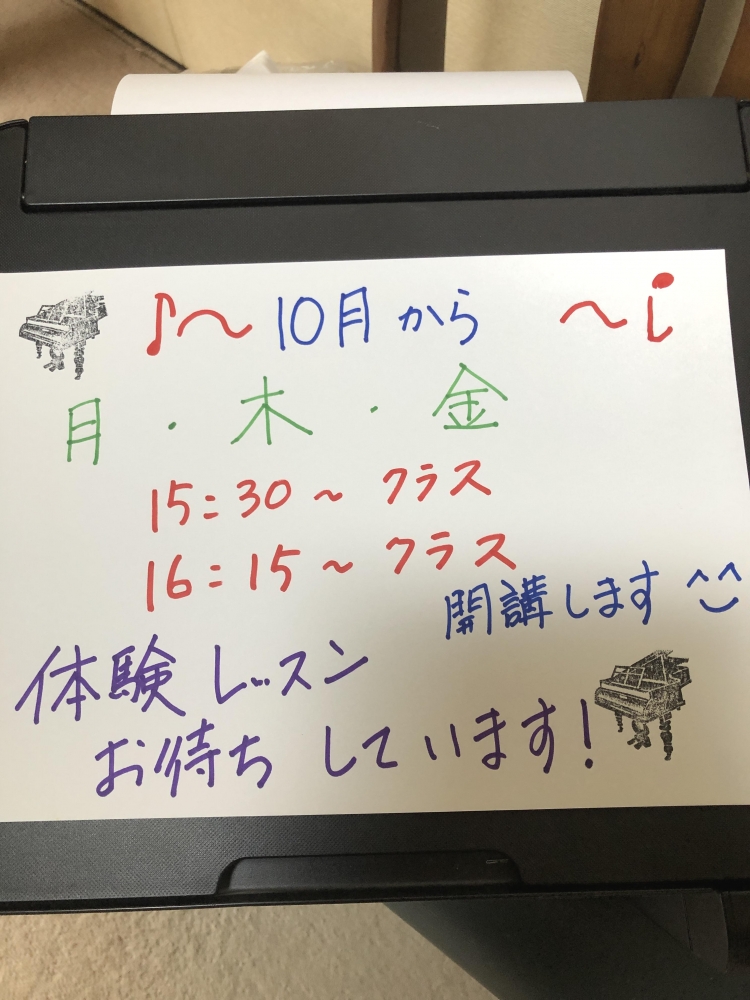 ♪〜 10月から 〜♩
月・木・金
15:30〜 クラス
16:15〜 クラス
開講します ^^
体験レッスン
お待ちしています!